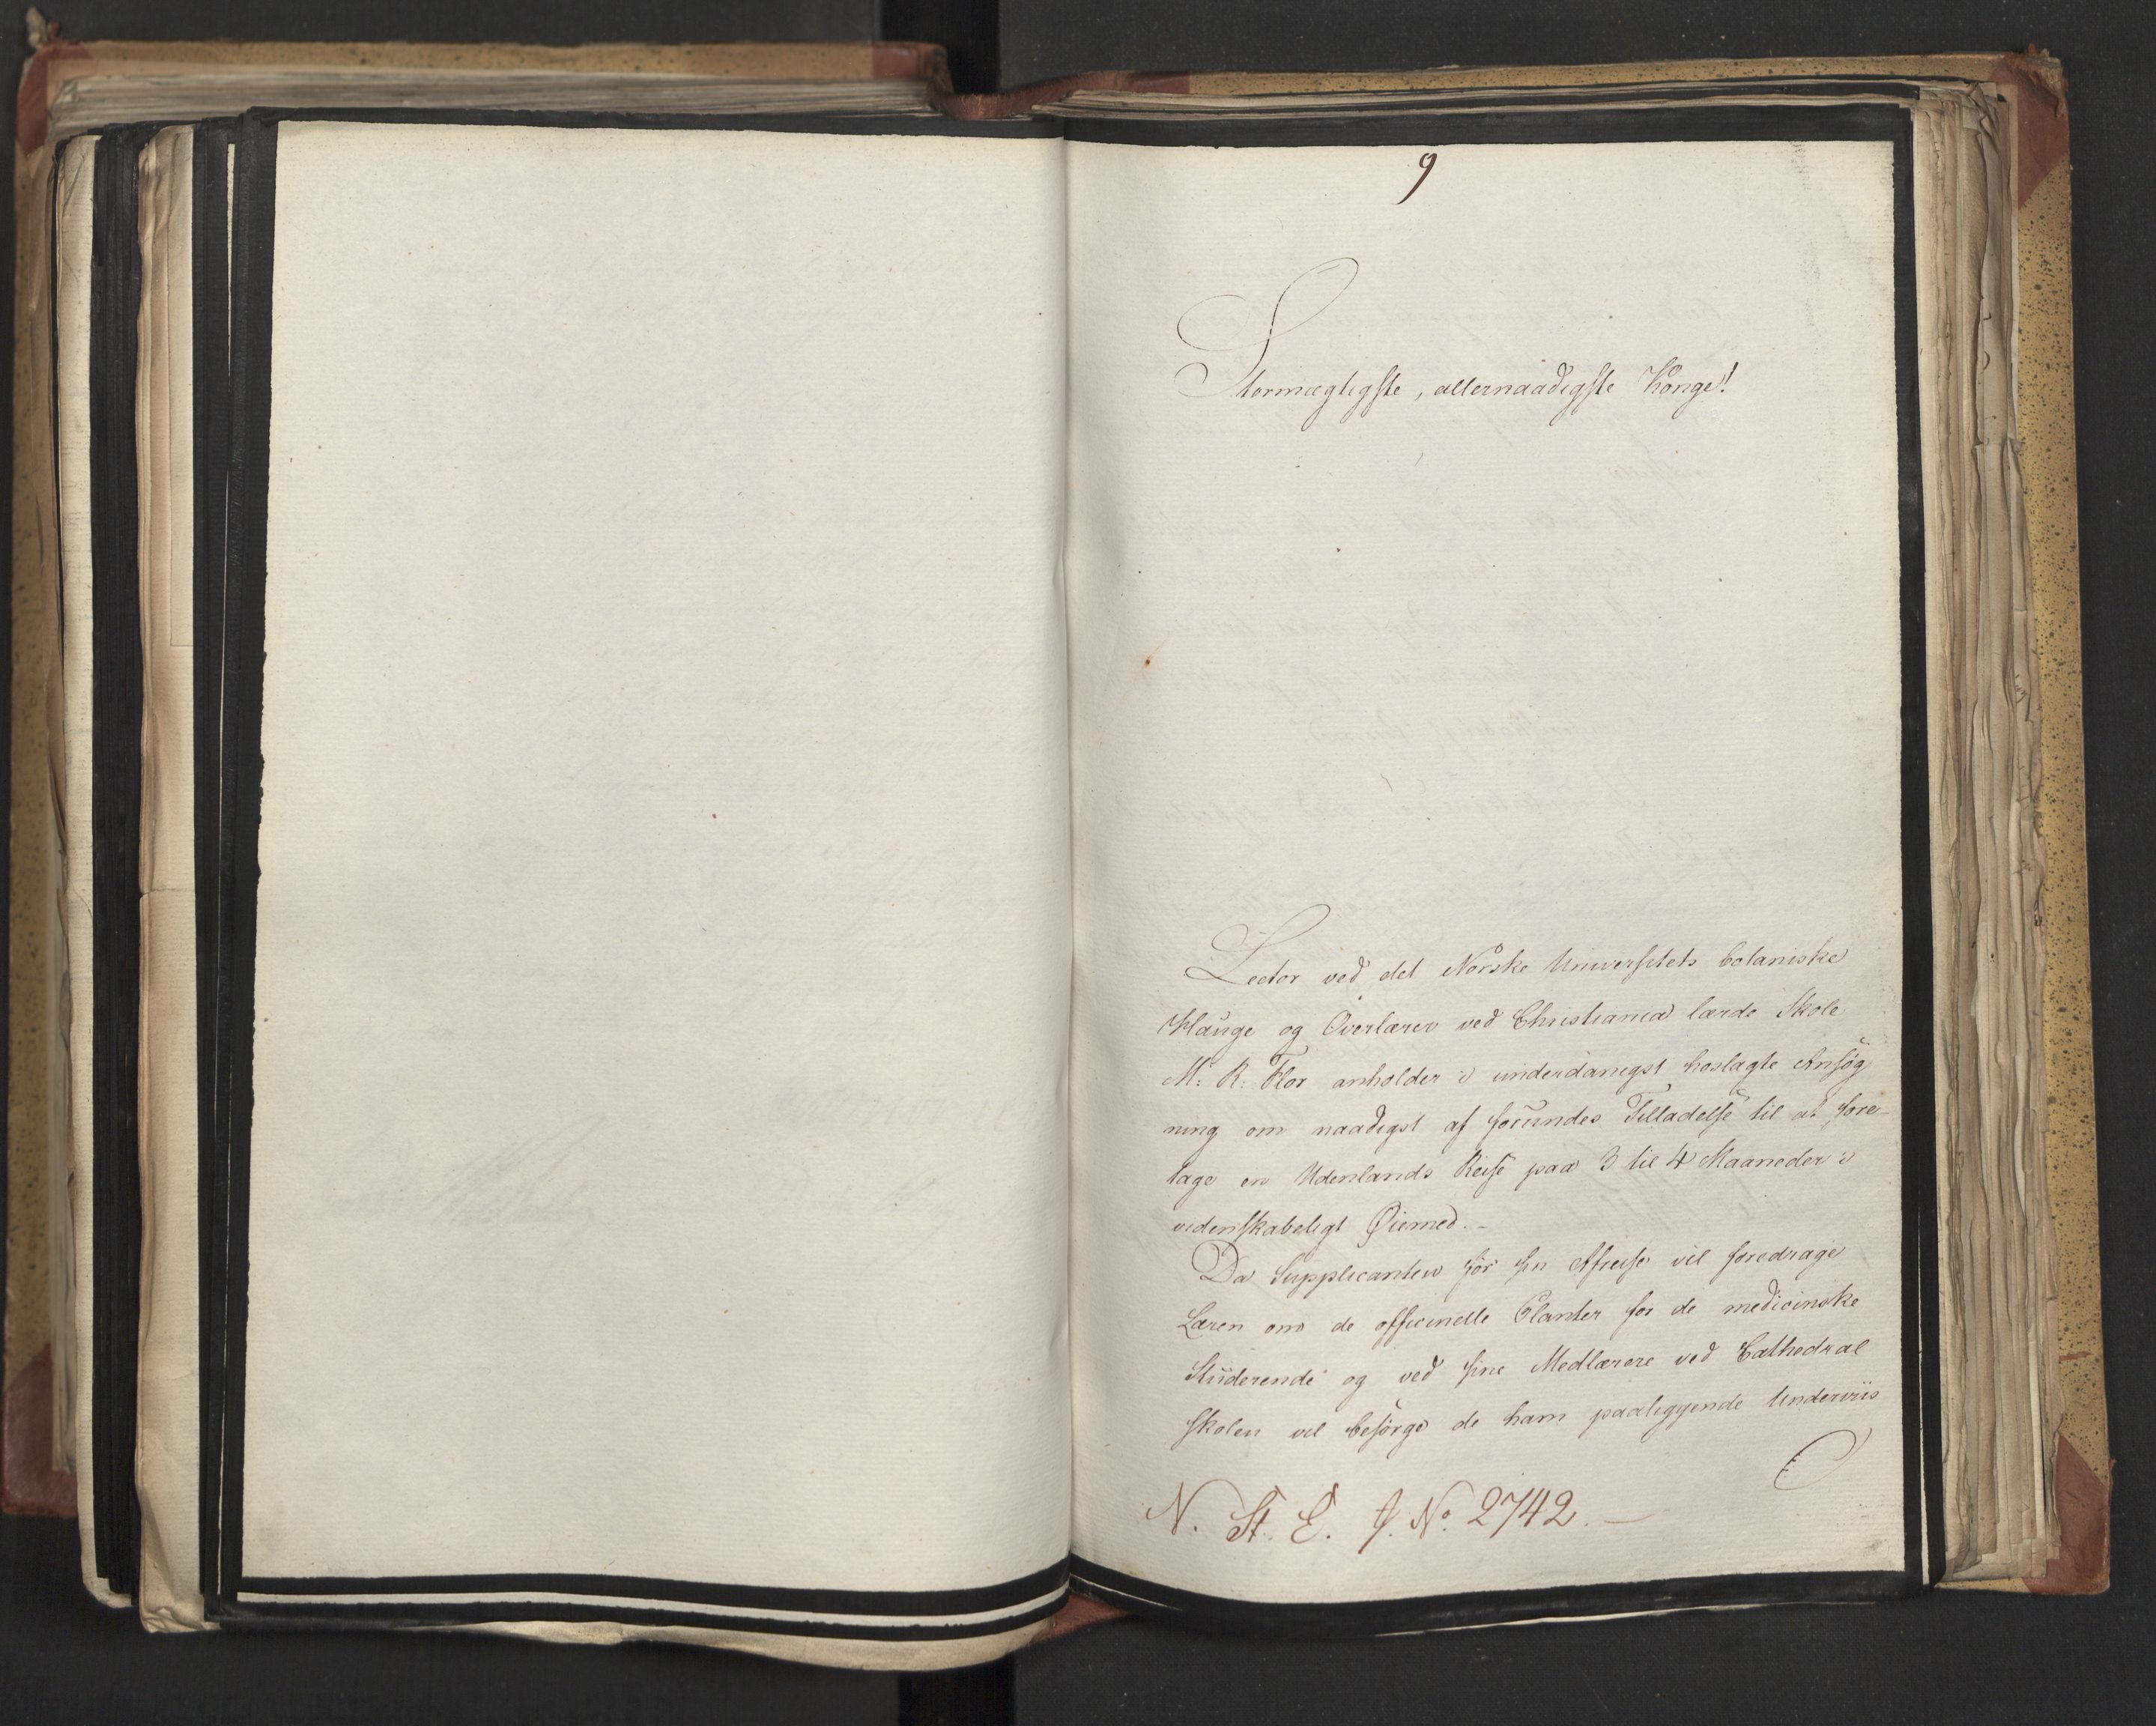 9
Stormægtigste, allernaadigste Konge!
Lector ved det Norske Universitets botaniske
Hauge og Overlærer ved Christiania lærde Skole
M: R: Flor anholder i underdanigst hoslagte Ansøg
ning om naadigst at forundes Tilladelse til at fore-
tage en Udenlands Reise paa 3 til 4 Maaneder i
videnskabeligt Øiemed. -
Da Supplicanten før sin Afreise vil foredrage
Læren om de officinelle Planter for de medicinske
Studerende og ved sine Medlærere ved Cathedral
skolen vil besørge de ham paaliggende Underviis
N. St. E. J. No. 2742. —